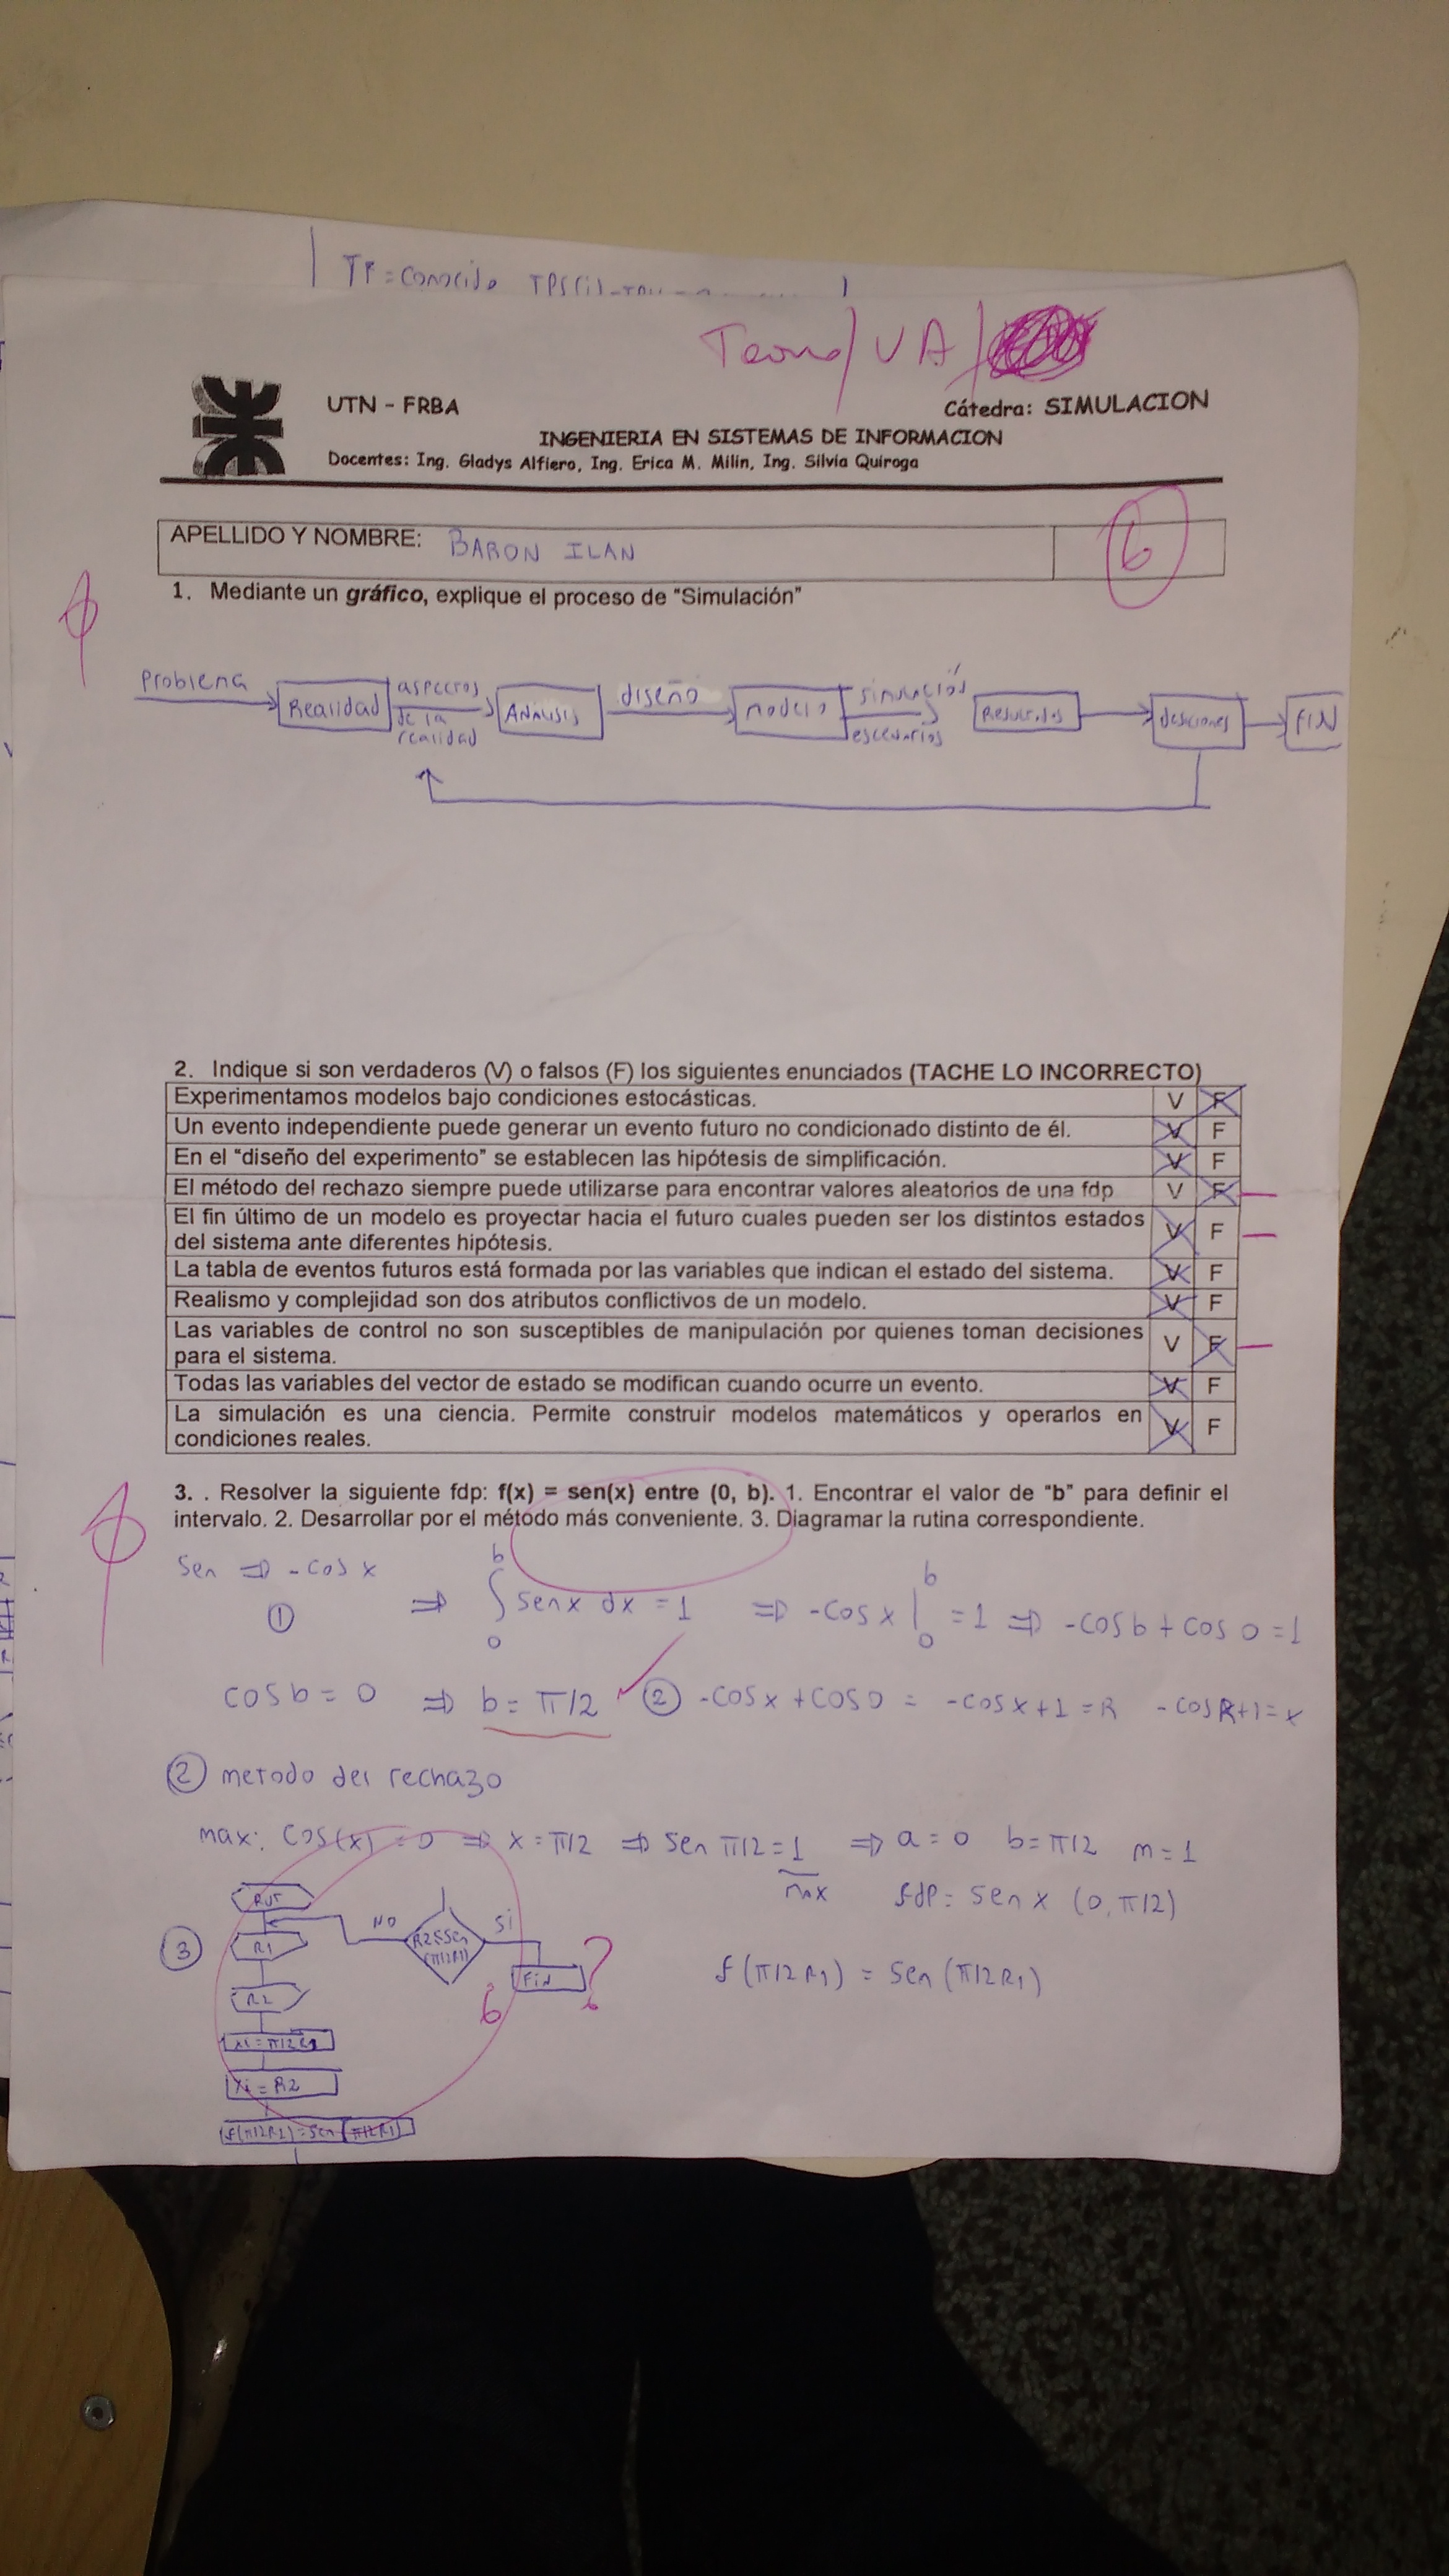 TF = Conocido TPS(i)
Teoria / VA /
UTN - FRBA
Cátedra: SIMULACION
INGENIERIA EN SISTEMAS DE INFORMACION
Docentes: Ing. Gladys Alfiero, Ing. Erica M. Milin, Ing. Silvia Quiroga
APELLIDO Y NOMBRE: BARON ILAN
6
1. Mediante un gráfico, explique el proceso de "Simulación"
Problema
Realidad
aspectos
de la
realidad
ANALISIS
diseño
modelo
simulación
escenarios
Resultados
desiciones
FIN
2. Indique si son verdaderos (V) o falsos (F) los siguientes enunciados (TACHE LO INCORRECTO)
Experimentamos modelos bajo condiciones estocásticas. V F
Un evento independiente puede generar un evento futuro no condicionado distinto de él. V F
En el "diseño del experimento" se establecen las hipótesis de simplificación. V F
El método del rechazo siempre puede utilizarse para encontrar valores aleatorios de una fdp V F
El fin último de un modelo es proyectar hacia el futuro cuales pueden ser los distintos estados
del sistema ante diferentes hipótesis. V F
La tabla de eventos futuros está formada por las variables que indican el estado del sistema. V F
Realismo y complejidad son dos atributos conflictivos de un modelo. V F
Las variables de control no son susceptibles de manipulación por quienes toman decisiones
para el sistema. V F
Todas las variables del vector de estado se modifican cuando ocurre un evento. V F
La simulación es una ciencia. Permite construir modelos matemáticos y operarlos en
condiciones reales. V F
3. . Resolver la siguiente fdp: f(x) = sen(x) entre (0, b). 1. Encontrar el valor de "b" para definir el
intervalo. 2. Desarrollar por el método más conveniente. 3. Diagramar la rutina correspondiente.
Sen ⇒ -cos x
① ⇒ ∫₀ᵇ sen x dx = 1 ⇒ -cos x |₀ᵇ = 1 ⇒ -cos b + cos 0 = 1
cos b = 0 ⇒ b = π/2 ② -cos x + cos 0 = -cos x + 1 = R -cos R + 1 = x
② metodo del rechazo
max: cos(x) = 0 ⇒ x = π/2 ⇒ sen π/2 = 1 ⇒ a = 0 b = π/2 m = 1
max
fdp = sen x (0, π/2)
③
RUT
R1
R2
xi = π/2 R1
Yi = R2
f(π/2R1) = sen (π/2R1)
NO
R2≤Sen
(π/2R1)
Si
FIN
?
6
f(π/2 R1) = sen (π/2 R1)